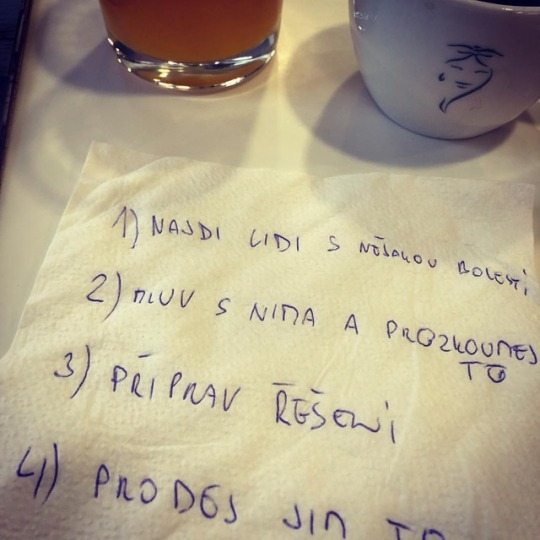 1) NAJDI LIDI S NĚJAKOU BOLESTÍ
2) MLUV S NIMA A PROZKOUMEJ
TO
3) PŘIPRAV ŘEŠENÍ
4) PRODEJ JIM TO